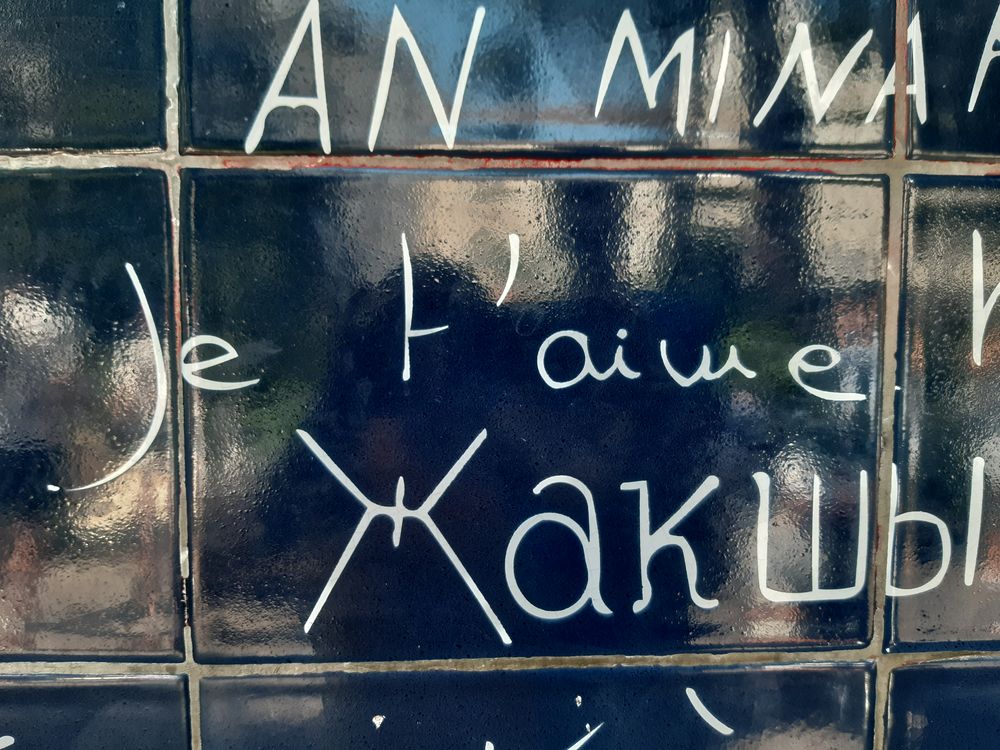 AN MINA
Je t'aime
Жакшы